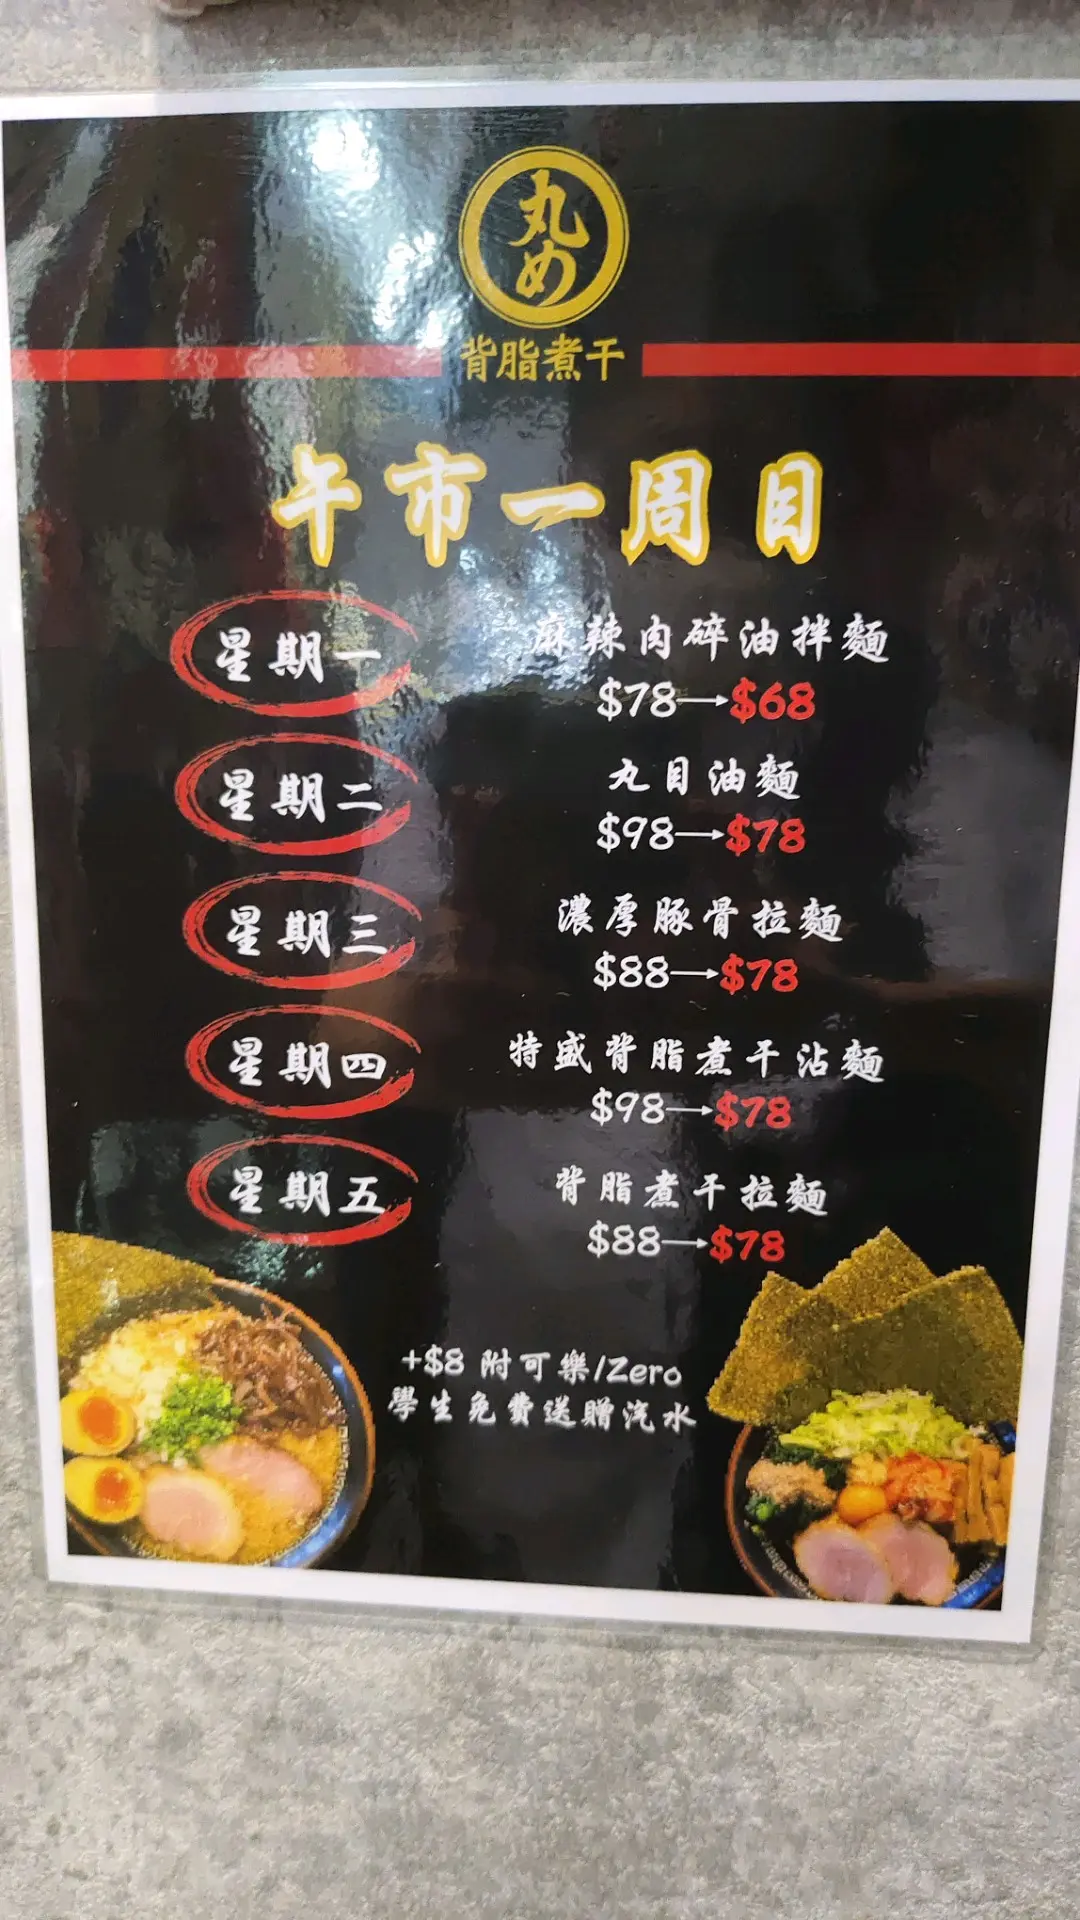 丸め
背脂煮干
午市一周目
星期一
麻辣肉碎油拌麵
$78→$68
星期二
丸目油麵
$98→$78
星期三
濃厚豚骨拉麵
$88→$78
星期四
特盛背脂煮干沾麵
$98→$78
星期五
背脂煮干拉麵
$88→$78
+$8 附可樂/Zero
學生免費送贈汽水